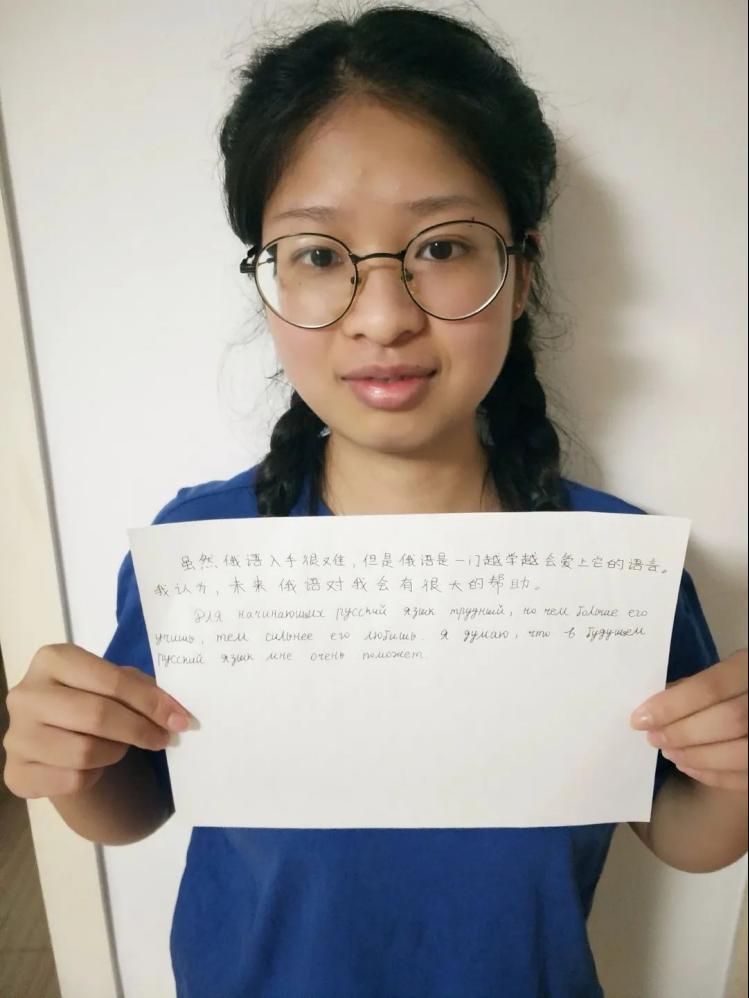 虽然俄语入手很难，但是俄语是一门越学越会爱上它的语言。
我认为，未来俄语对我会有很大的帮助。
Для начинающих русский язык трудный, но чем больше его
учишь, тем сильнее его любишь. Я думаю, что в будущем
русский язык мне очень поможет.